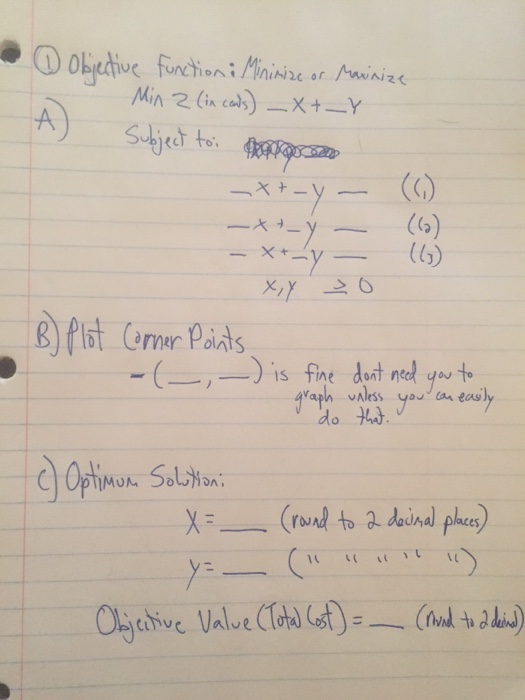 ① Objective Function: Minimize or Maximize
Min Z (in cents) _X+_Y
A)
Subject to:
_x+_y _ (C1)
_x+_y _ (C2)
_x+_y _ (C3)
x,y ≥ 0
B) Plot Corner Points
-(_,_) is fine dont need you to
graph unless you can easily
do that.
C) Optimum Solution:
X=__ (round to 2 decimal places)
y=__ (" " " " ")
Objective Value (Total Cost) = __ (round to 2 decimal)